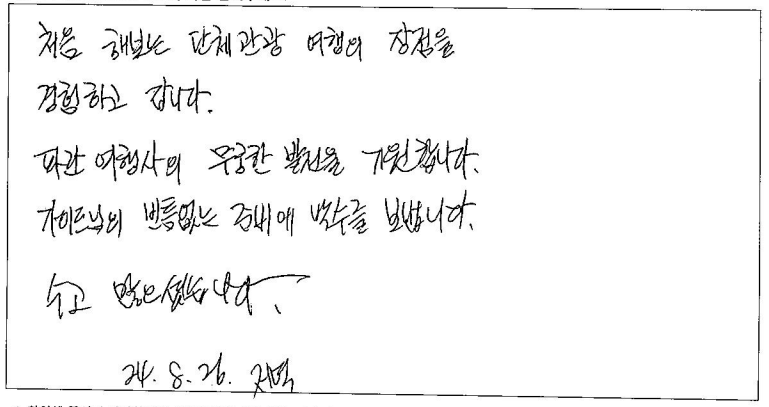 처음 해보는 단체관광 여행의 장점을
경험하고 갑니다.
파란여행사의 무궁한 발전을 기원합니다.
가이드님의 빈틈없는 준비에 박수를 보냅니다.
수고 많으셨습니다.
24. 8. 26. 저녁